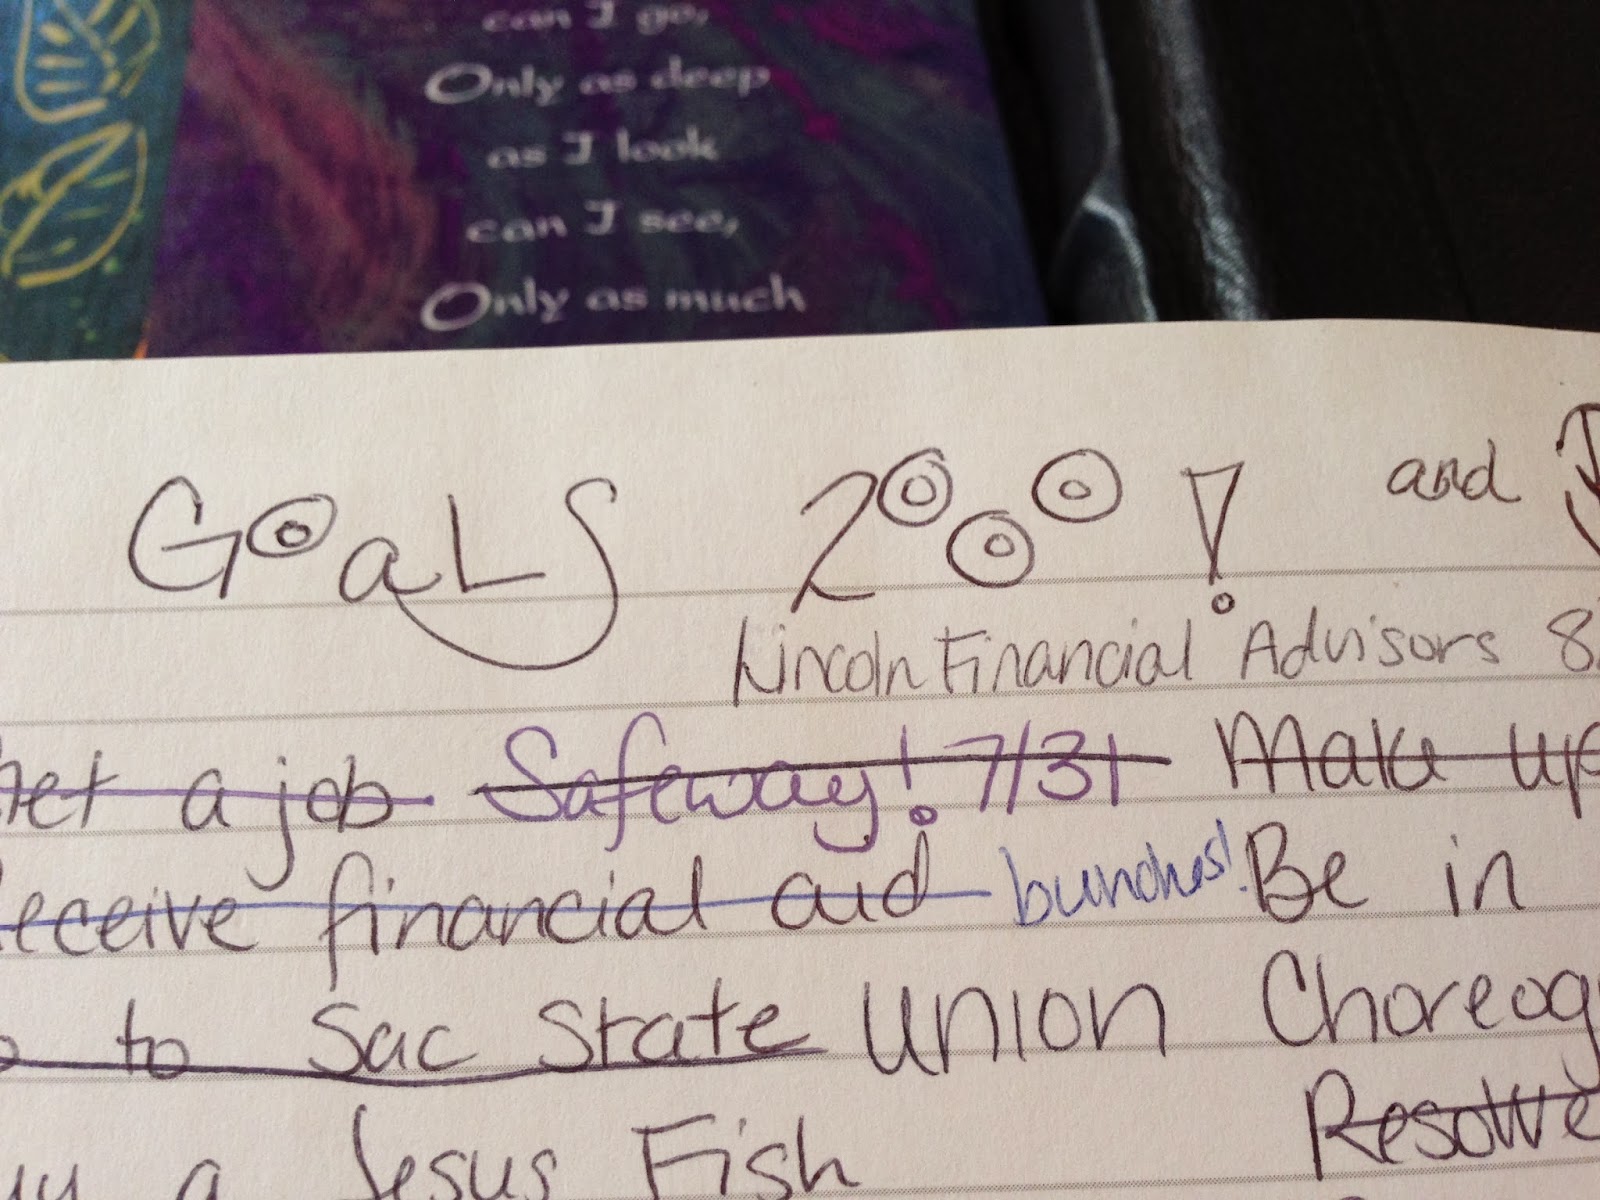 can I go,
Only as deep
as I look
can I see,
Only as much
GOaLS 2000! and
Lincoln Financial Advisors 8
get a job Safeway! 7/31 Make up
Receive financial aid bunches! Be in
to Sac State UNION Choreog
a Jesus Fish Resolve